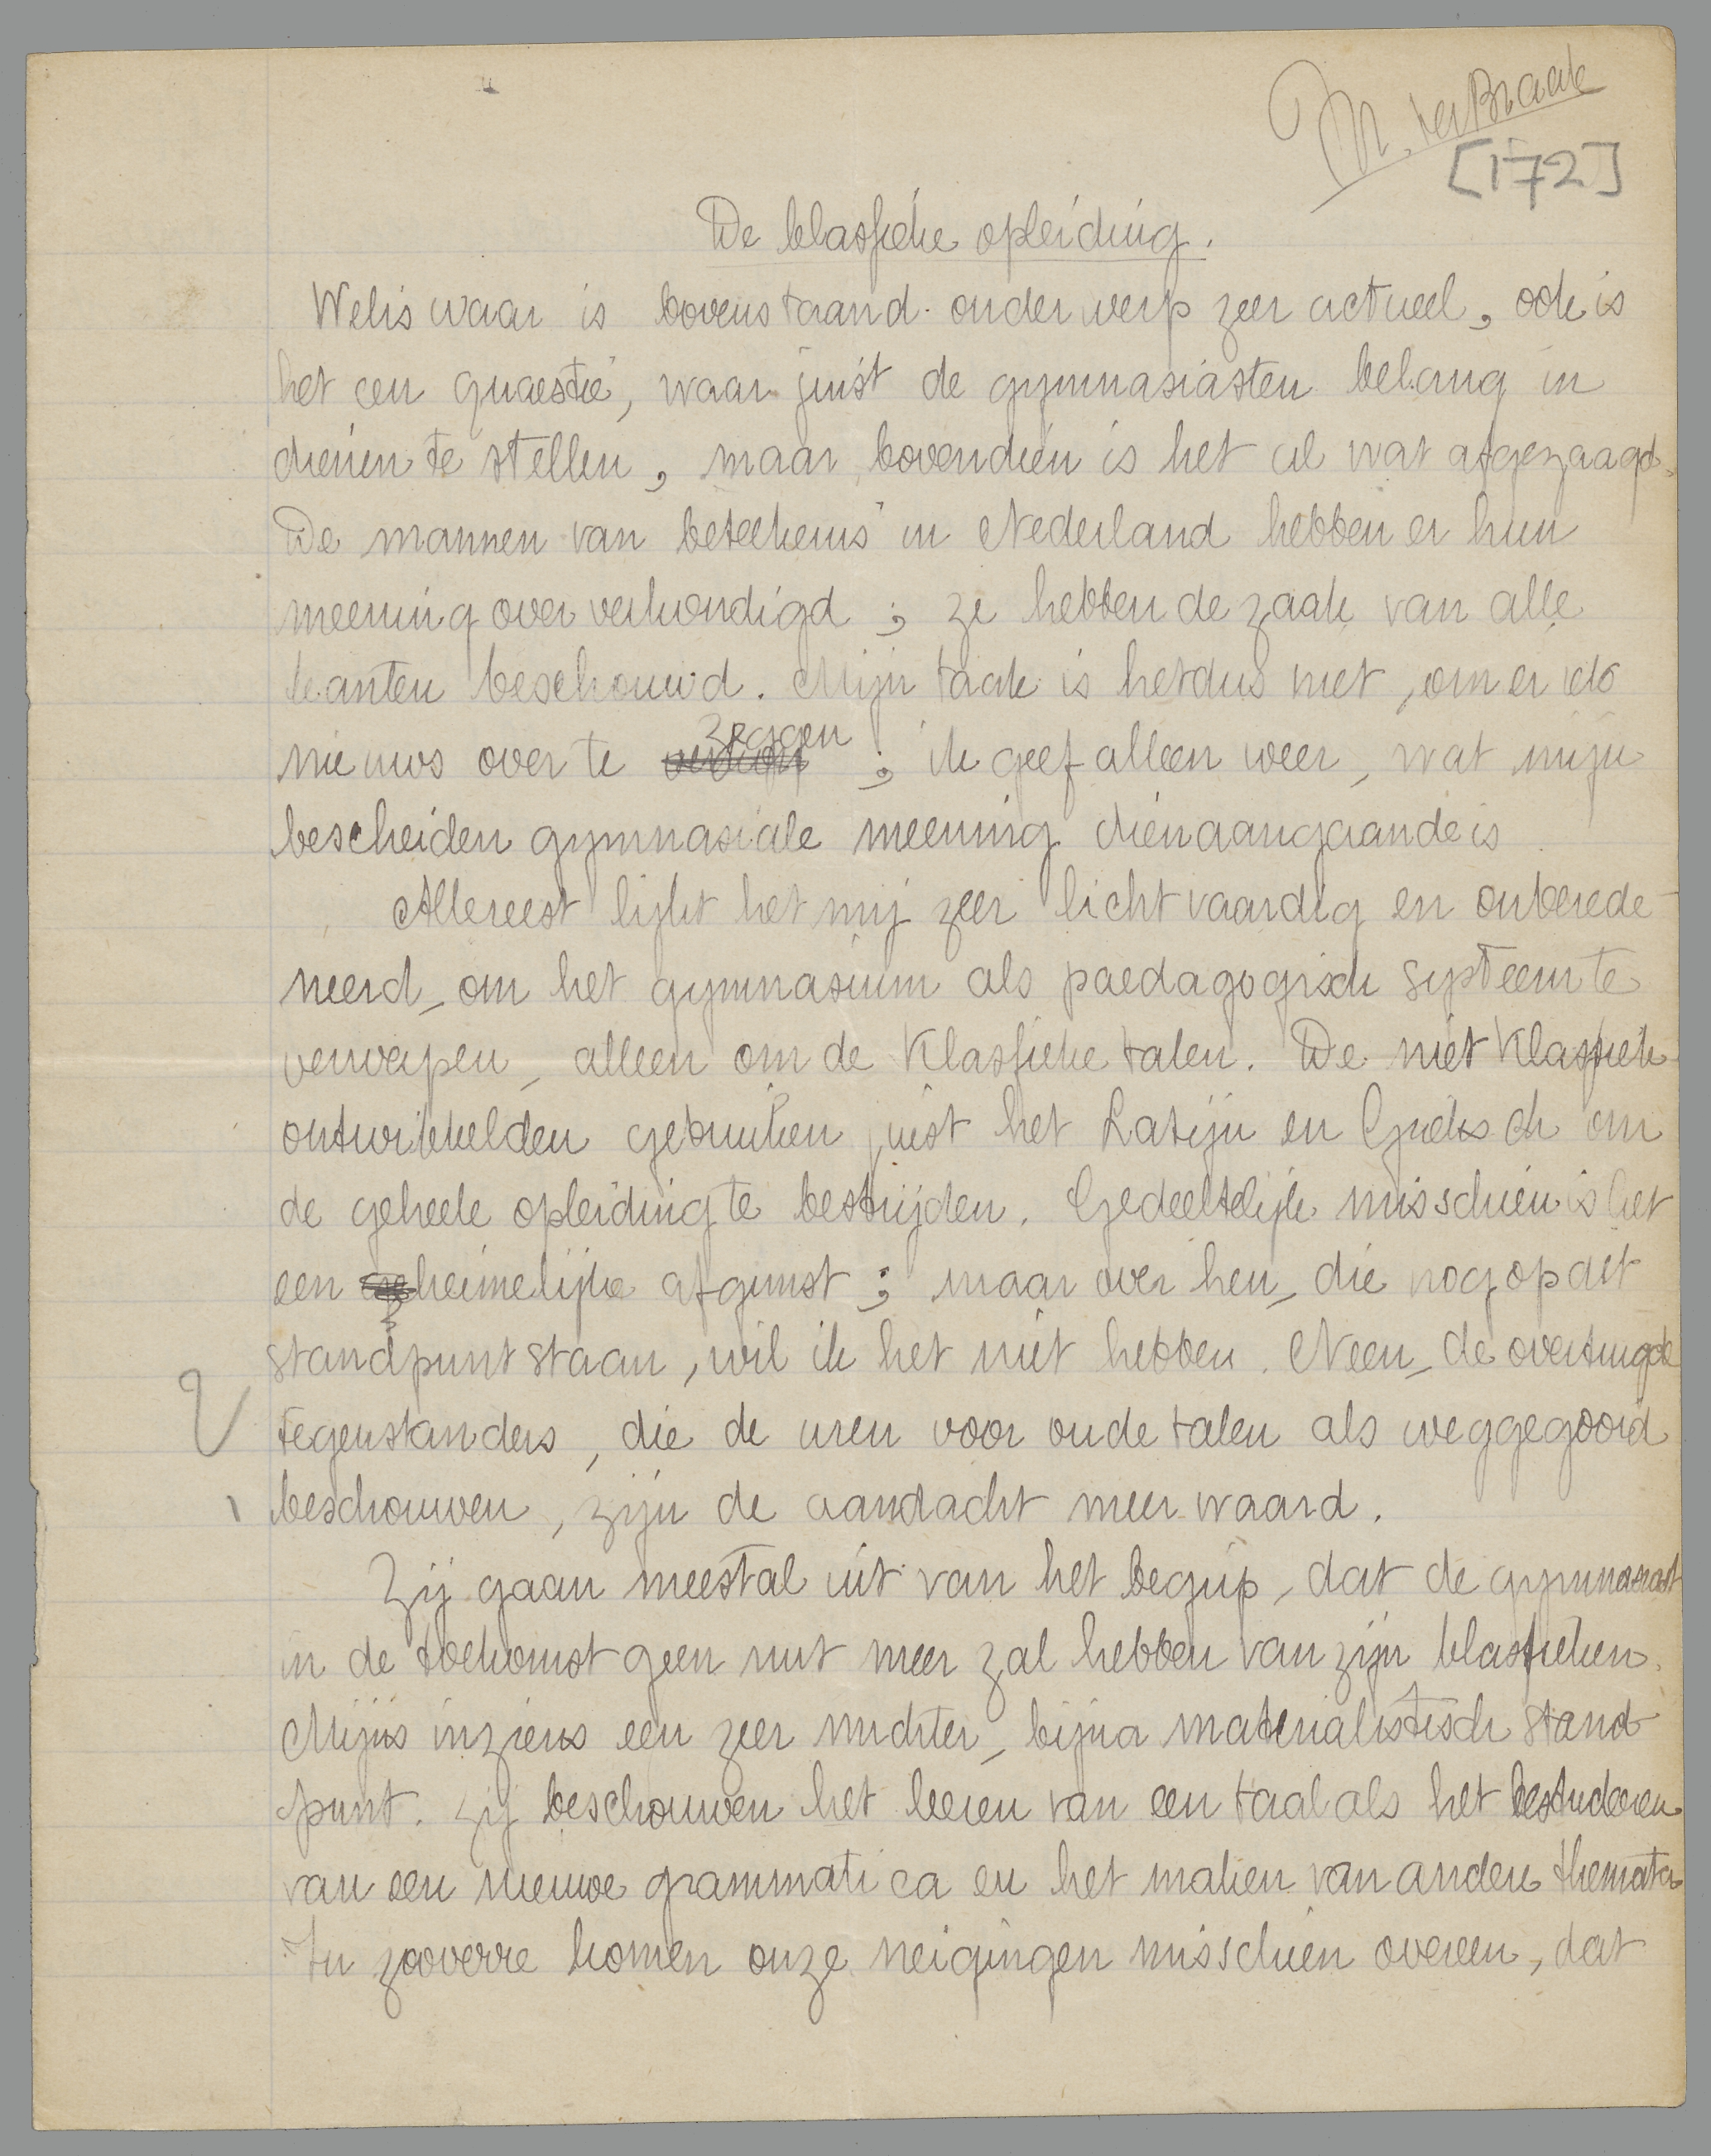 M. ter Braak
[172]
De klassieke opleiding.
Welis waar is bovenstaand onderwerp zeer actueel, ook is
het een quaestie, waar juist de gymnasiasten belang in
dienen te stellen, maar bovendien is het al wat afgezaagd.
De mannen van beteekenis in Nederland hebben er hun
meening over verkondigd; ze hebben de zaak van alle
kanten beschouwd. Mijn taak is het dus niet, om er iets
nieuws over te zeggen; ik geef alleen weer, wat mijn
bescheiden gymnasiale meening dienaangaande is.
Allereest lijkt het mij zeer lichtvaardig en onberede-
neerd, om het gymnasium als paedagogisch systeem te
verwerpen, alleen om de Klassieke talen. De niet Klassiek
ontwikkelden gebruiken juist het Latijn en Grieksch om
de geheele opleiding te bestrijden. Gedeeltelijk misschien is het
een heimelijke afgunst; maar over hen, die nog op dit
standpunt staan, wil ik het niet hebben. Neen, de overtuigde
tegenstanders, die de uren voor oude talen als weggegooid
beschouwen, zijn de aandacht meer waard.
Zij gaan meestal uit van het begrip, dat de gymnasiast
in de toekomst geen nut meer zal hebben van zijn klassieken.
Mijns inziens een zeer nuchter, bijna materialistisch stand
punt. Zij beschouwen het leeren van een taal als het bestudeeren
van een nieuwe grammatica en het maken van andere themata
In zooverre komen onze neigingen misschien overeen, dat